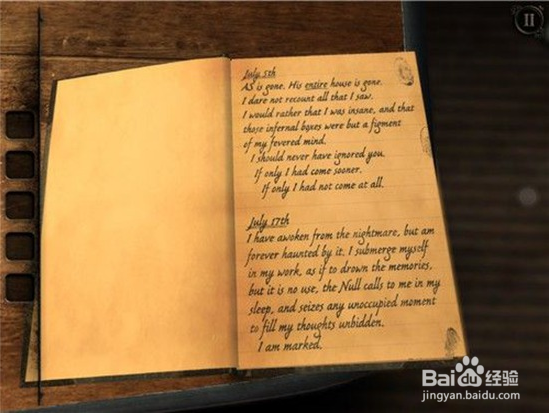 July 5th
AS is gone. His entire house is gone.
I dare not recount all that I saw.
I would rather that I was insane, and that
those infernal boxes were but a figment
of my fevered mind.
I should never have ignored you.
If only I had come sooner.
If only I had not come at all.
July 17th
I have awoken from the nightmare, but am
forever haunted by it. I submerge myself
in my work, as if to drown the memories,
but it is no use, the Null calls to me in my
sleep, and seizes any unoccupied moment
to fill my thoughts unbidden.
I am marked.
Baidu 经验
jingyan.baidu.com